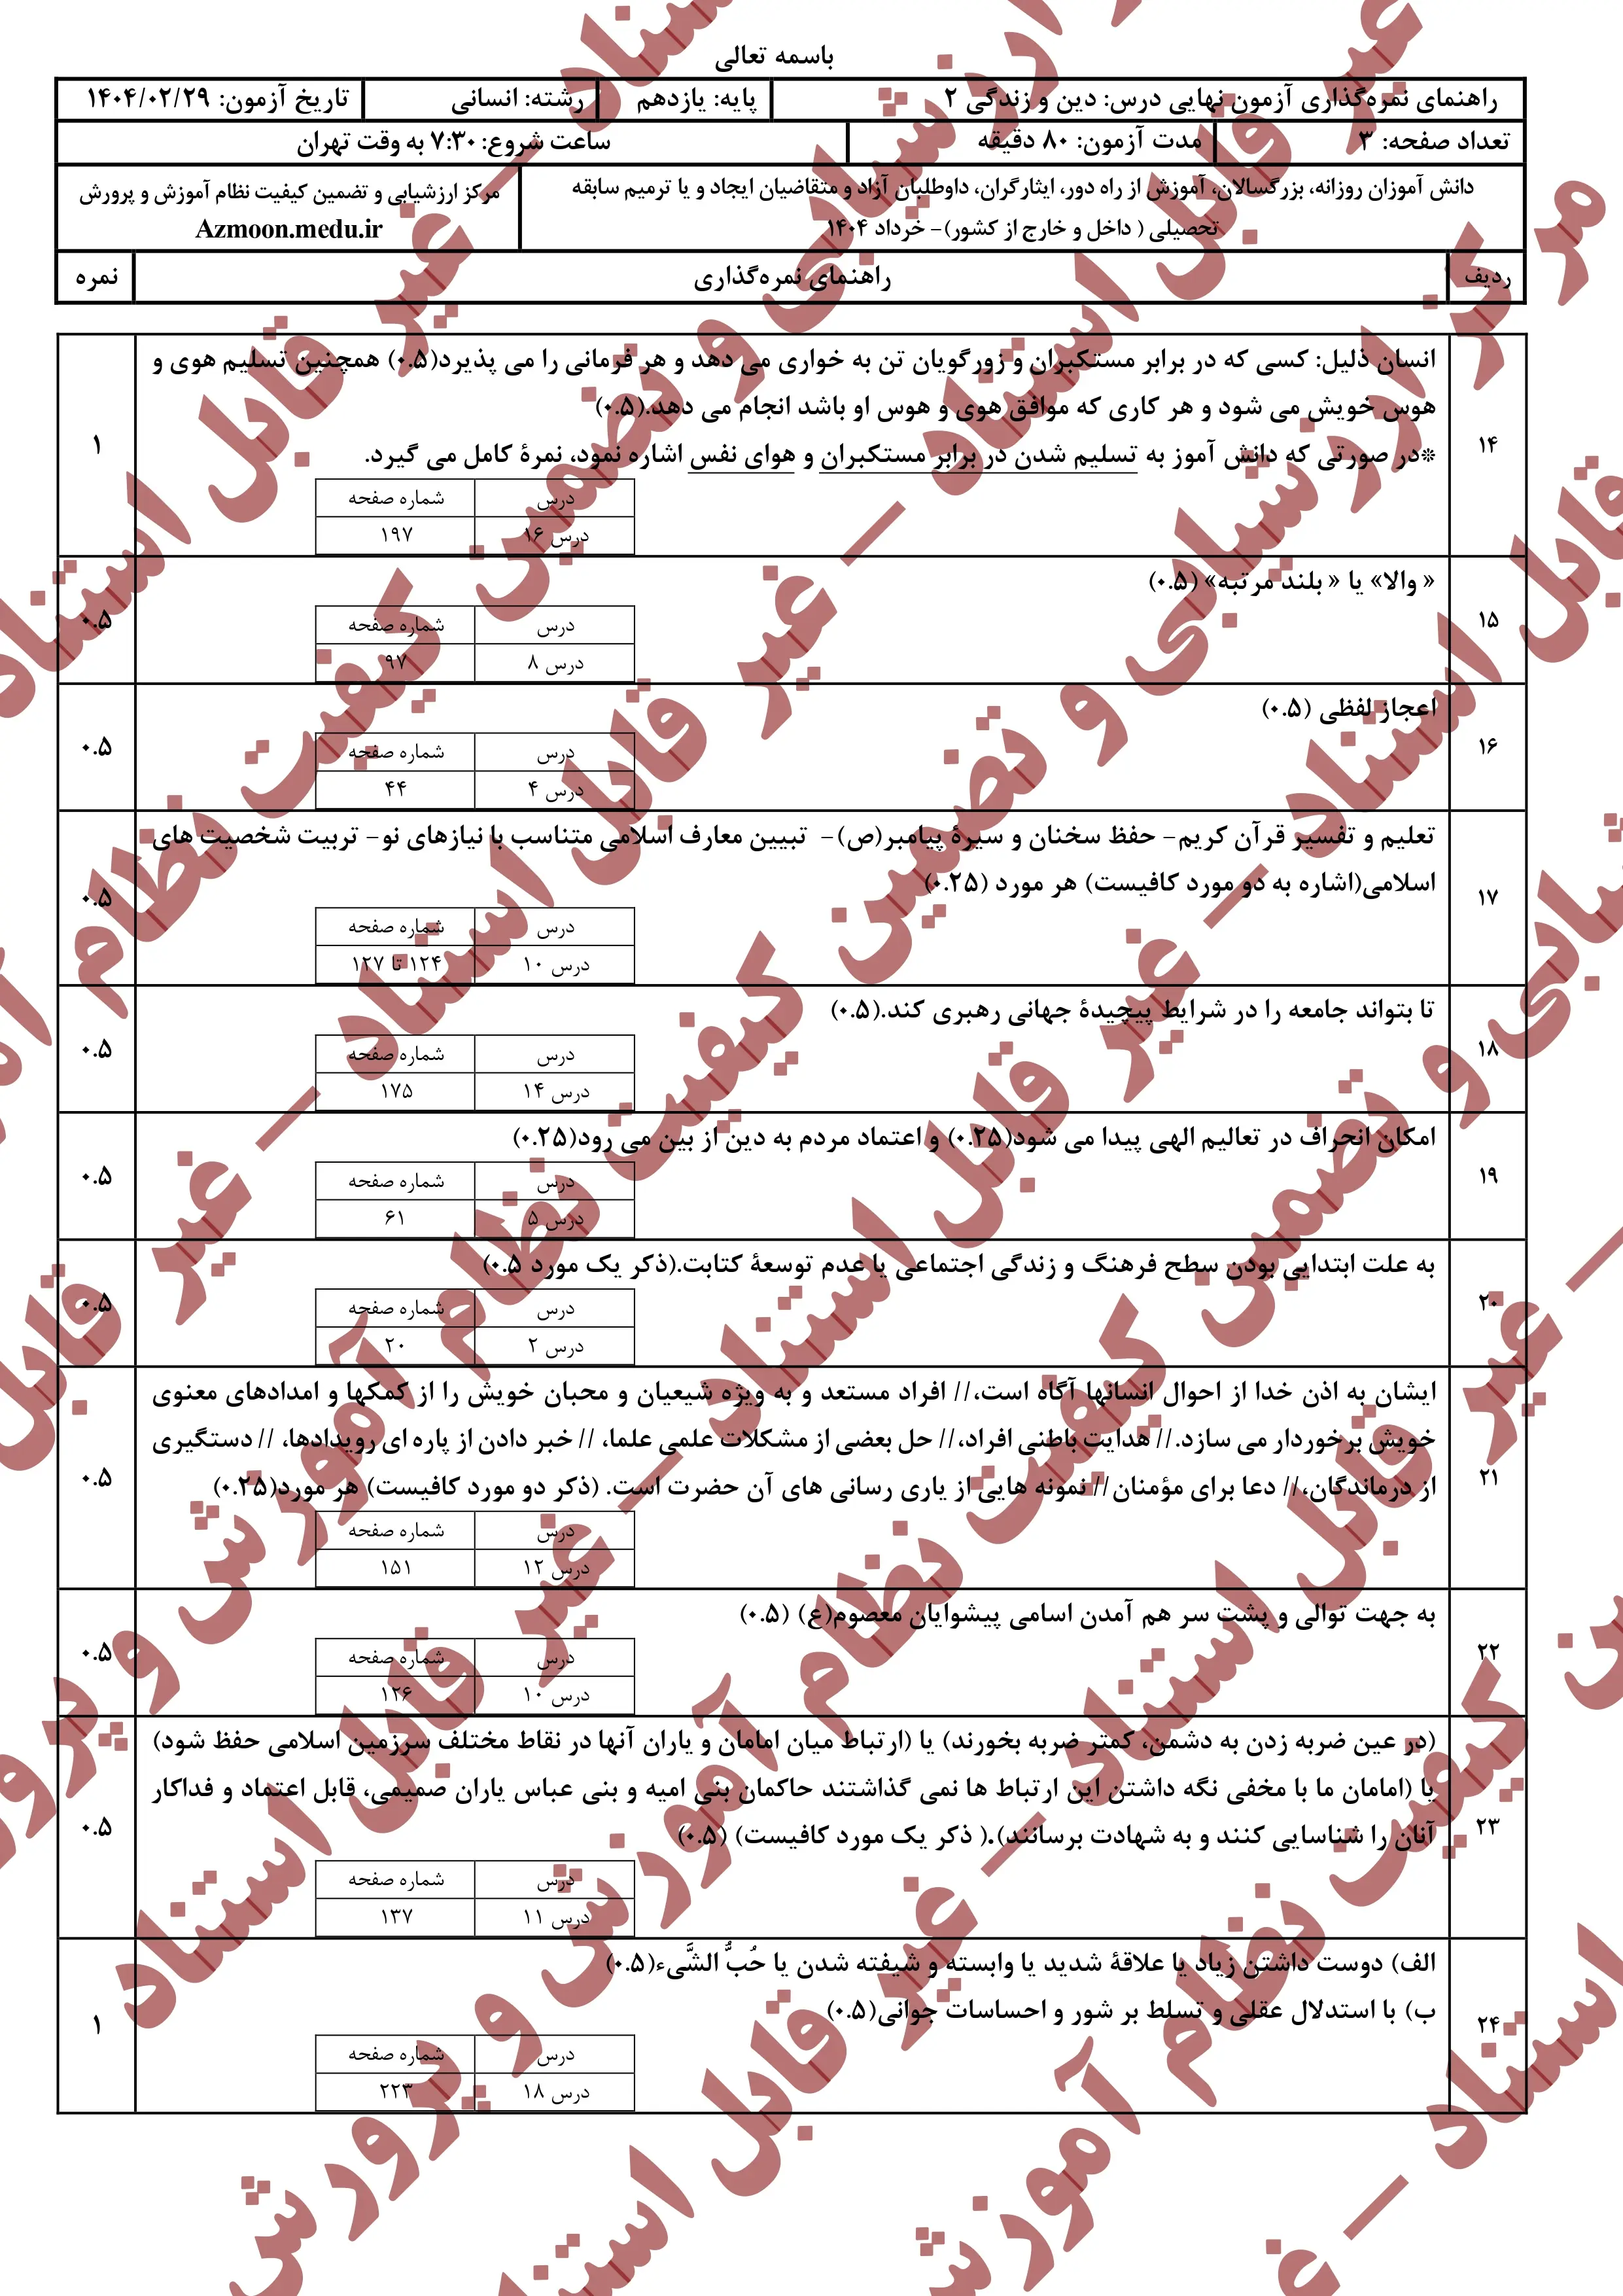 باسمه تعالی
راهنمای نمره‌گذاری آزمون نهایی درس: دین و زندگی ۲
پایه: یازدهم
رشته: انسانی
تاریخ آزمون: ۱۴۰۴/۰۲/۲۹
تعداد صفحه: ۳
مدت آزمون: ۸۰ دقیقه
ساعت شروع: ۷:۳۰ به وقت تهران
دانش آموزان روزانه، بزرگسالان، آموزش از راه دور، ایثارگران، داوطلبان آزاد و متقاضیان ایجاد و یا ترمیم سابقه
تحصیلی ( داخل و خارج از کشور)- خرداد ۱۴۰۴
مرکز ارزشیابی و تضمین کیفیت نظام آموزش و پرورش
Azmoon.medu.ir
ردیف
راهنمای نمره‌گذاری
نمره
۱۴
انسان ذلیل: کسی که در برابر مستکبران و زورگویان تن به خواری می دهد و هر فرمانی را می پذیرد(۰.۵) همچنین تسلیم هوی و
هوس خویش می شود و هر کاری که موافق هوی و هوس او باشد انجام می دهد.(۰.۵)
*در صورتی که دانش آموز به تسلیم شدن در برابر مستکبران و هوای نفس اشاره نمود، نمرهٔ کامل می گیرد.
درس شماره صفحه
درس ۱۶ ۱۹۷
۱
۱۵
« والا» یا « بلند مرتبه» (۰.۵)
درس شماره صفحه
درس ۸ ۹۷
۰.۵
۱۶
اعجاز لفظی (۰.۵)
درس شماره صفحه
درس ۴ ۴۴
۰.۵
۱۷
تعلیم و تفسیر قرآن کریم- حفظ سخنان و سیرهٔ پیامبر(ص)- تبیین معارف اسلامی متناسب با نیازهای نو- تربیت شخصیت های
اسلامی(اشاره به دو مورد کافیست) هر مورد (۰.۲۵)
درس شماره صفحه
درس ۱۰ ۱۲۴ تا ۱۲۷
۰.۵
۱۸
تا بتواند جامعه را در شرایط پیچیدهٔ جهانی رهبری کند.(۰.۵)
درس شماره صفحه
درس ۱۴ ۱۷۵
۰.۵
۱۹
امکان انحراف در تعالیم الهی پیدا می شود(۰.۲۵) و اعتماد مردم به دین از بین می رود(۰.۲۵)
درس شماره صفحه
درس ۵ ۶۱
۰.۵
۲۰
به علت ابتدایی بودن سطح فرهنگ و زندگی اجتماعی یا عدم توسعهٔ کتابت.(ذکر یک مورد ۰.۵)
درس شماره صفحه
درس ۲ ۲۰
۰.۵
۲۱
ایشان به اذن خدا از احوال انسانها آگاه است،// افراد مستعد و به ویژه شیعیان و محبان خویش را از کمکها و امدادهای معنوی
خویش برخوردار می سازد.// هدایت باطنی افراد،// حل بعضی از مشکلات علمی علما، // خبر دادن از پاره ای رویدادها، // دستگیری
از درماندگان،// دعا برای مؤمنان// نمونه هایی از یاری رسانی های آن حضرت است. (ذکر دو مورد کافیست) هر مورد(۰.۲۵)
درس شماره صفحه
درس ۱۲ ۱۵۱
۰.۵
۲۲
به جهت توالی و پشت سر هم آمدن اسامی پیشوایان معصوم(ع) (۰.۵)
درس شماره صفحه
درس ۱۰ ۱۲۶
۰.۵
۲۳
(در عین ضربه زدن به دشمن، کمتر ضربه بخورند) یا (ارتباط میان امامان و یاران آنها در نقاط مختلف سرزمین اسلامی حفظ شود)
یا (امامان ما با مخفی نگه داشتن این ارتباط ها نمی گذاشتند حاکمان بنی امیه و بنی عباس یاران صمیمی، قابل اعتماد و فداکار
آنان را شناسایی کنند و به شهادت برسانند).( ذکر یک مورد کافیست) (۰.۵)
درس شماره صفحه
درس ۱۱ ۱۳۷
۰.۵
۲۴
الف) دوست داشتن زیاد یا علاقهٔ شدید یا وابسته و شیفته شدن یا حُبُّ الشَّیء(۰.۵)
ب) با استدلال عقلی و تسلط بر شور و احساسات جوانی(۰.۵)
درس شماره صفحه
درس ۱۸ ۲۲۳
۱
مرکز ارزشیابی و تضمین کیفیت نظام آموزش و پرورش – غیر قابل استناد